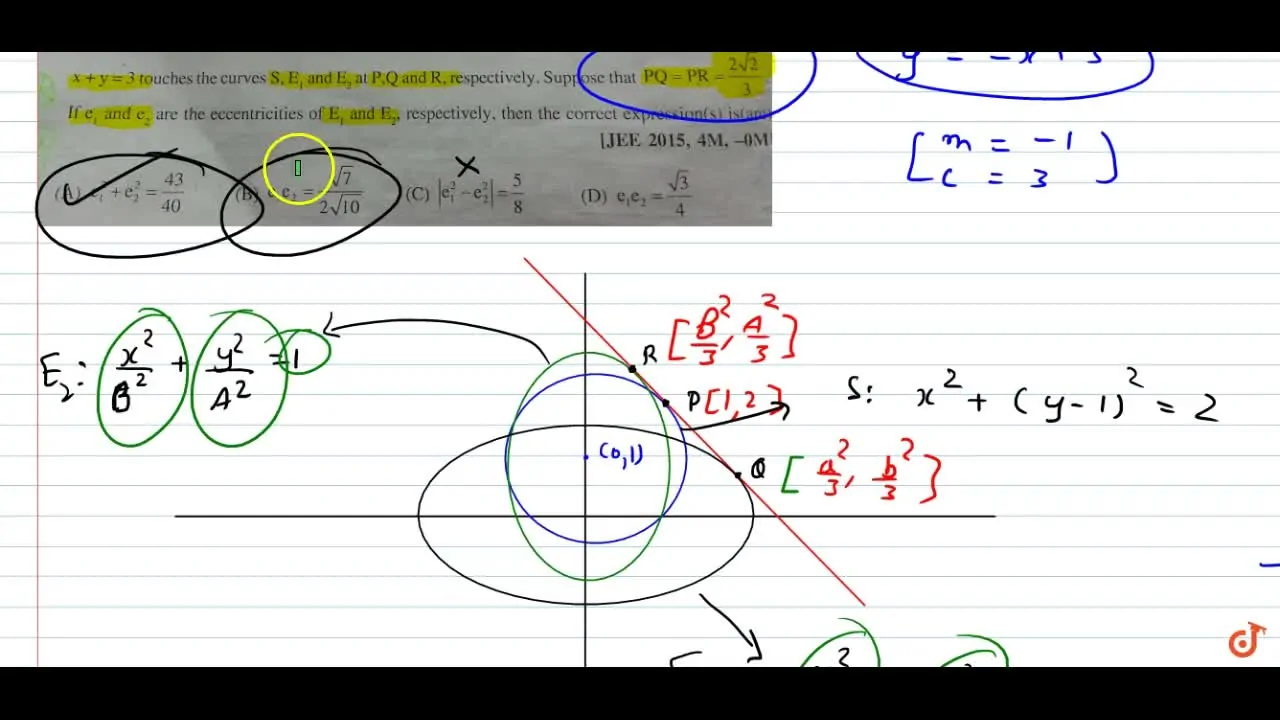 x + y = 3 touches the curves S, E₁ and E₂ at P,Q and R, respectively. Suppose that PQ = PR = 2√2/3
y = -x+3
If e₁ and e₂ are the eccentricities of E₁ and E₂, respectively, then the correct expression(s) is(are)
[JEE 2015, 4M, –0M
[ m = -1
c = 3 ]
(A) e₁² + e₂² = 43/40 (B) e₂ = √7/2√10 (C) |e₁² – e₂²| = 5/8 (D) e₁e₂ = √3/4
E₂: x²/B² + y²/A² = 1
R [B²/3, A²/3]
P[1,2]
S: x² + (y-1)² = 2
(0,1)
Q [a²/3, b²/3]